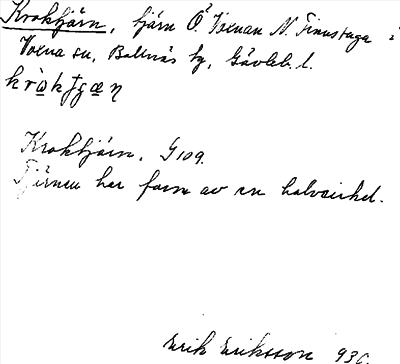 Krokhjärn, tjärn Ö. Voxnan N. Finnstuga i
Voxna sn, Bollnäs tg, Gävleb. l.
kròktjæn
Krokhjärn. G 109.
Tjärnen har form av en halvcirkel.
Erik Eriksson 936.